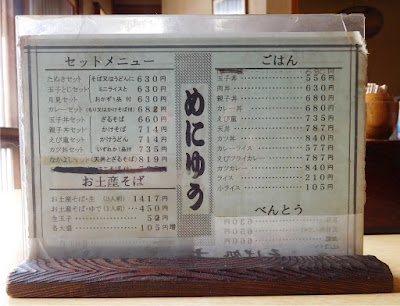 セットメニュー
たぬきセット そば又はうどんに 630円
玉子とじセット ミニライスと 630円
月見セット おかずり品付 630円
カレーセット もり又はかけそば付 682円
玉子丼セット ざるそば 660円
親子丼セット かけそば 714円
えび重セット かけうどん 714円
カツ丼セット いずれか1品付 735円
なかよしセット 天丼とざるそば 819円
お土産そば
お土産そば・生 (3人前) 1417円
お土産そば・ゆで(2人前) 450円
生玉子 52円
各大盛 105円増
めにゅう
ごはん
玉子丼 556円
肉丼 630円
親子丼 680円
カレー丼 680円
えび重 735円
天丼 787円
カツ丼 787円
カレーライス 577円
えびフライカレー 787円
カツカレー 787円
ライス 210円
小ライス 105円
べんとう